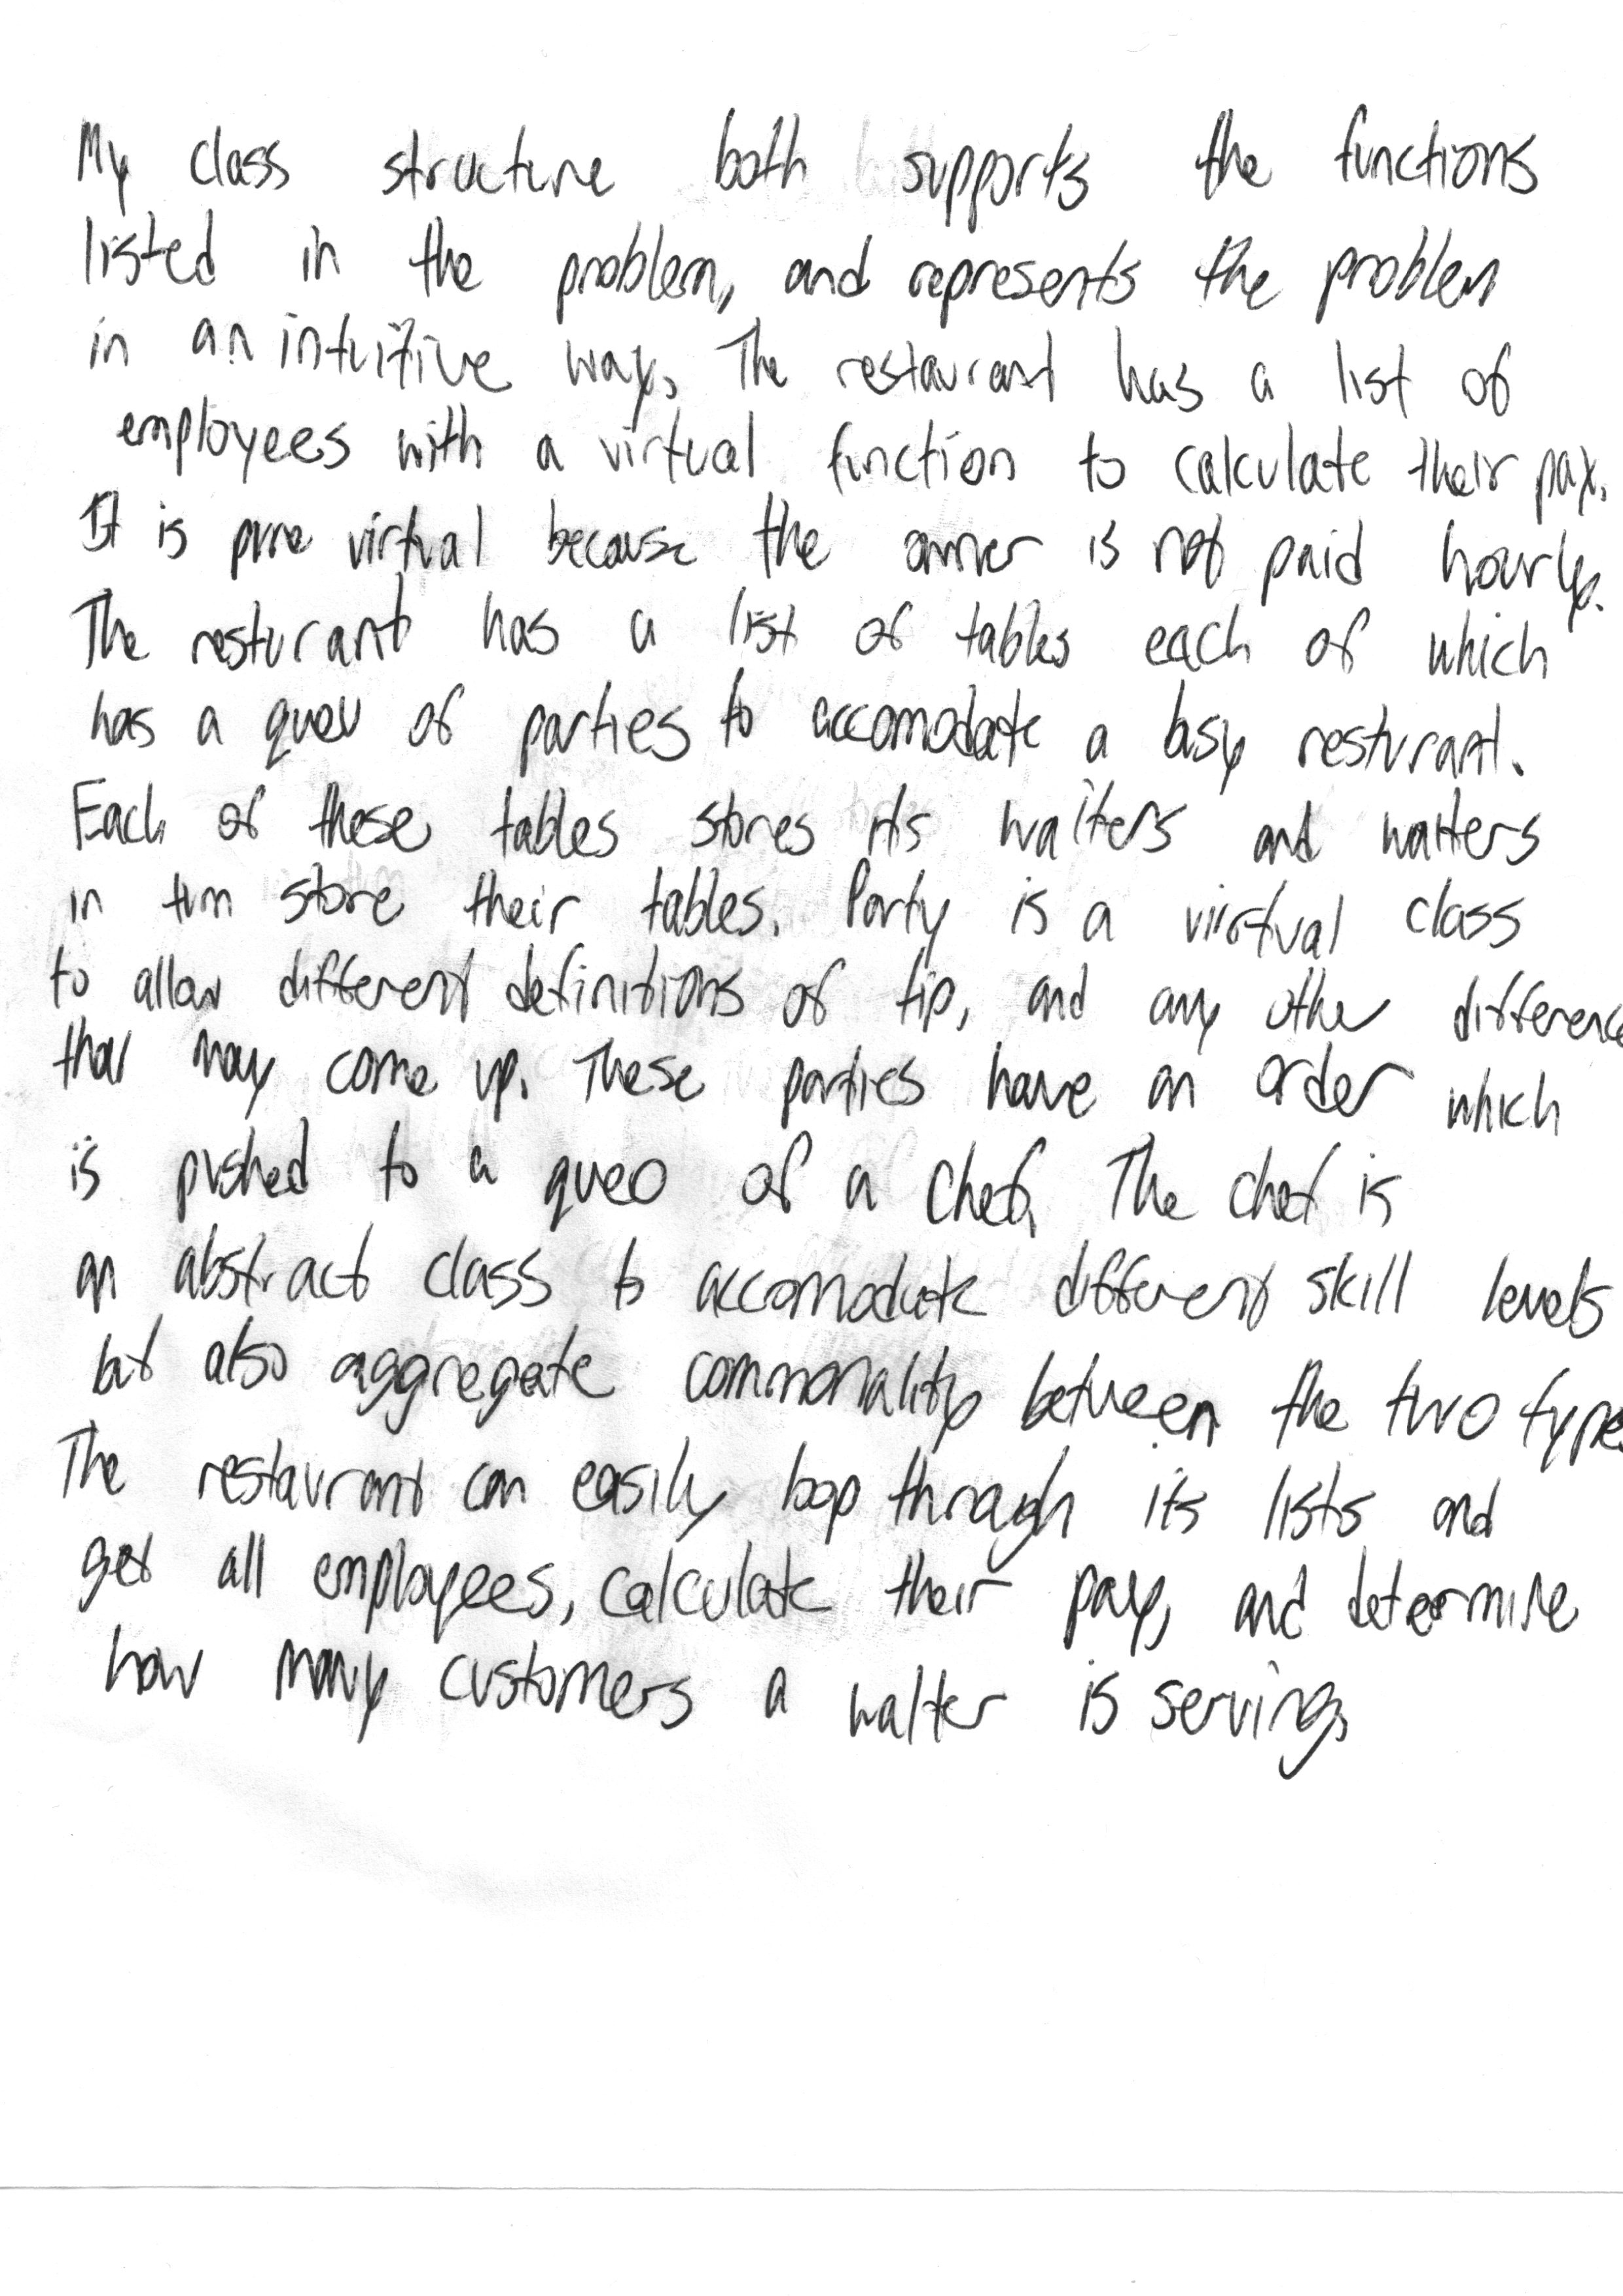 My class structure both supports the functions
listed in the problem, and represents the problem
in an intuitive way. The restaurant has a list of
employees with a virtual function to calculate their pay.
It is pure virtual because the owner is not paid hourly.
The resturant has a list of tables each of which
has a queu of parties to accomodate a busy resturant.
Each of these tables stores its waiters and waiters
in turn store their tables. Party is a viirtual class
to allow different definitions of tip, and any other difference
that may come up. These parties have an order which
is pushed to a queo of a chef. The chef is
an abstract class to accomodate different skill levels
but also aggregate commonality between the two types
The restaurant can easily loop through its lists and
get all employees, calculate their pay, and determine
how many customers a waiter is serving.